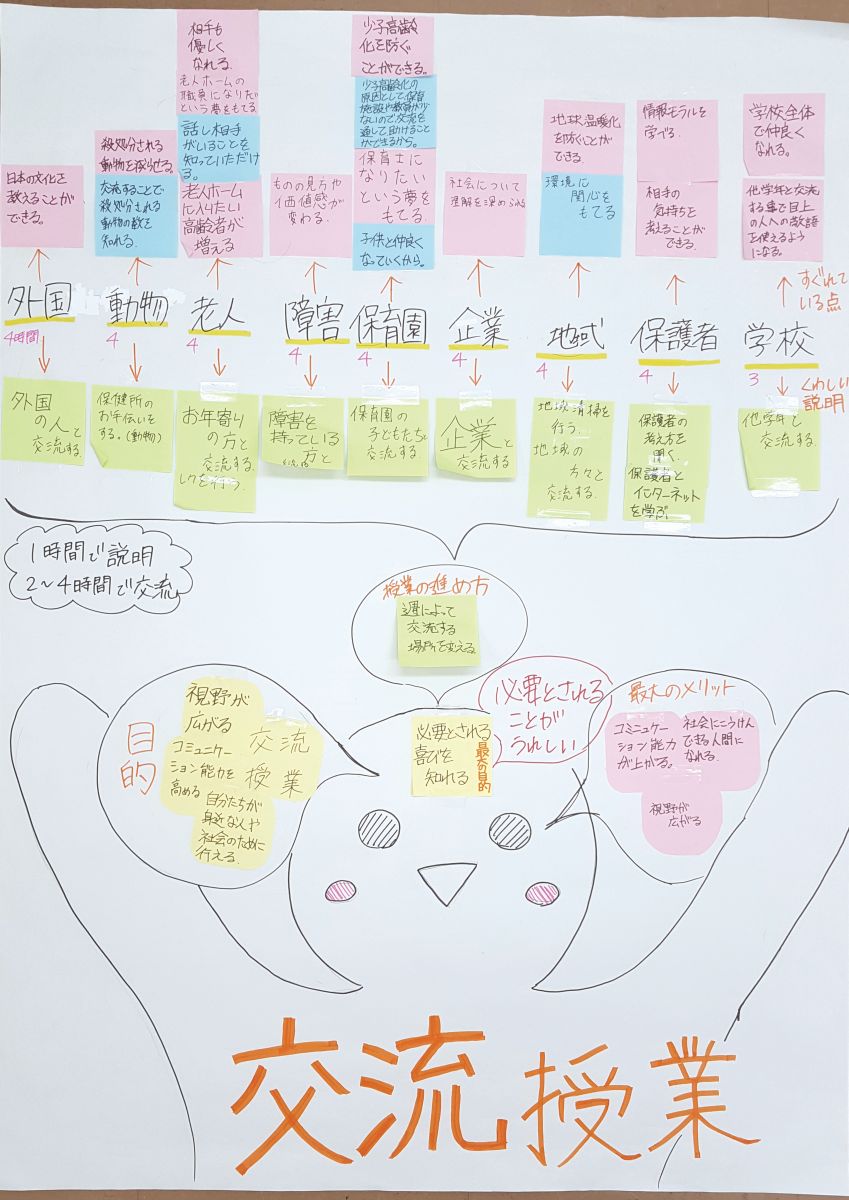 相手も
優しく
なれる。
老人ホームの
職員になりたい
という夢をもてる
話し相手
がいることを
知っていただけ
る。
老人ホーム
に入りたい
高齢者が
増える
少子高齢
化を防ぐ
ことができる。
少子高齢化の
原因として、保育
施設や教員が少
ないので交流を
通して助けること
ができるから。
保育士に
なりたい
という夢
をもてる
子供と仲良く
なっていくから。
日本の文化を
教えることが
できる。
殺処分される
動物を減らせる。
交流することで
殺処分される
動物の数を
知れる。
ものの見方や
価値感が
変わる。
社会について
理解を深められる
地球温暖化
を防ぐことが
できる。
環境に
関心を
もてる
情報モラルを
学べる。
相手の
気持ちを
考えることが
できる。
学校全体
で仲良く
なれる。
他学年と交流
する事で目上
の人への敬語
を使えるよう
になる。
すぐれて
いる点
外国
4時間
動物
4
老人
4
障害
4
保育園
4
企業
4
地域
4
保護者
4
学校
3
くわしい
説明
外国
の人と
交流
保健所の
お手伝いを
する。(動物)
お年寄り
の方と
交流する。
レクを行う.
障害を
持っている
方と
交流する
保育園の
子どもたちと
交流する
企業と
交流する
地域清掃を
行う.
地域の
方々と
交流する.
保護者の
考え方を
聞く.
保護者と
インターネット
を学ぶ.
他学年と
交流する.
1時間で説明
2〜4時間で交流
授業の進め方
週によって
交流する
場所を変える.
目的
視野が
広がる
コミュニケー
ション能力を
高める
自分たちが
身近な人や
社会のために
行える.
交流
授業
必要とされる
喜びを
知れる
最大の目的
必要とされる
ことが
うれしい
最大のメリット
コミニュケー
ション能力
が上がる。
社会にこうけん
できる人間に
なれる.
視野が
広がる
交流授業